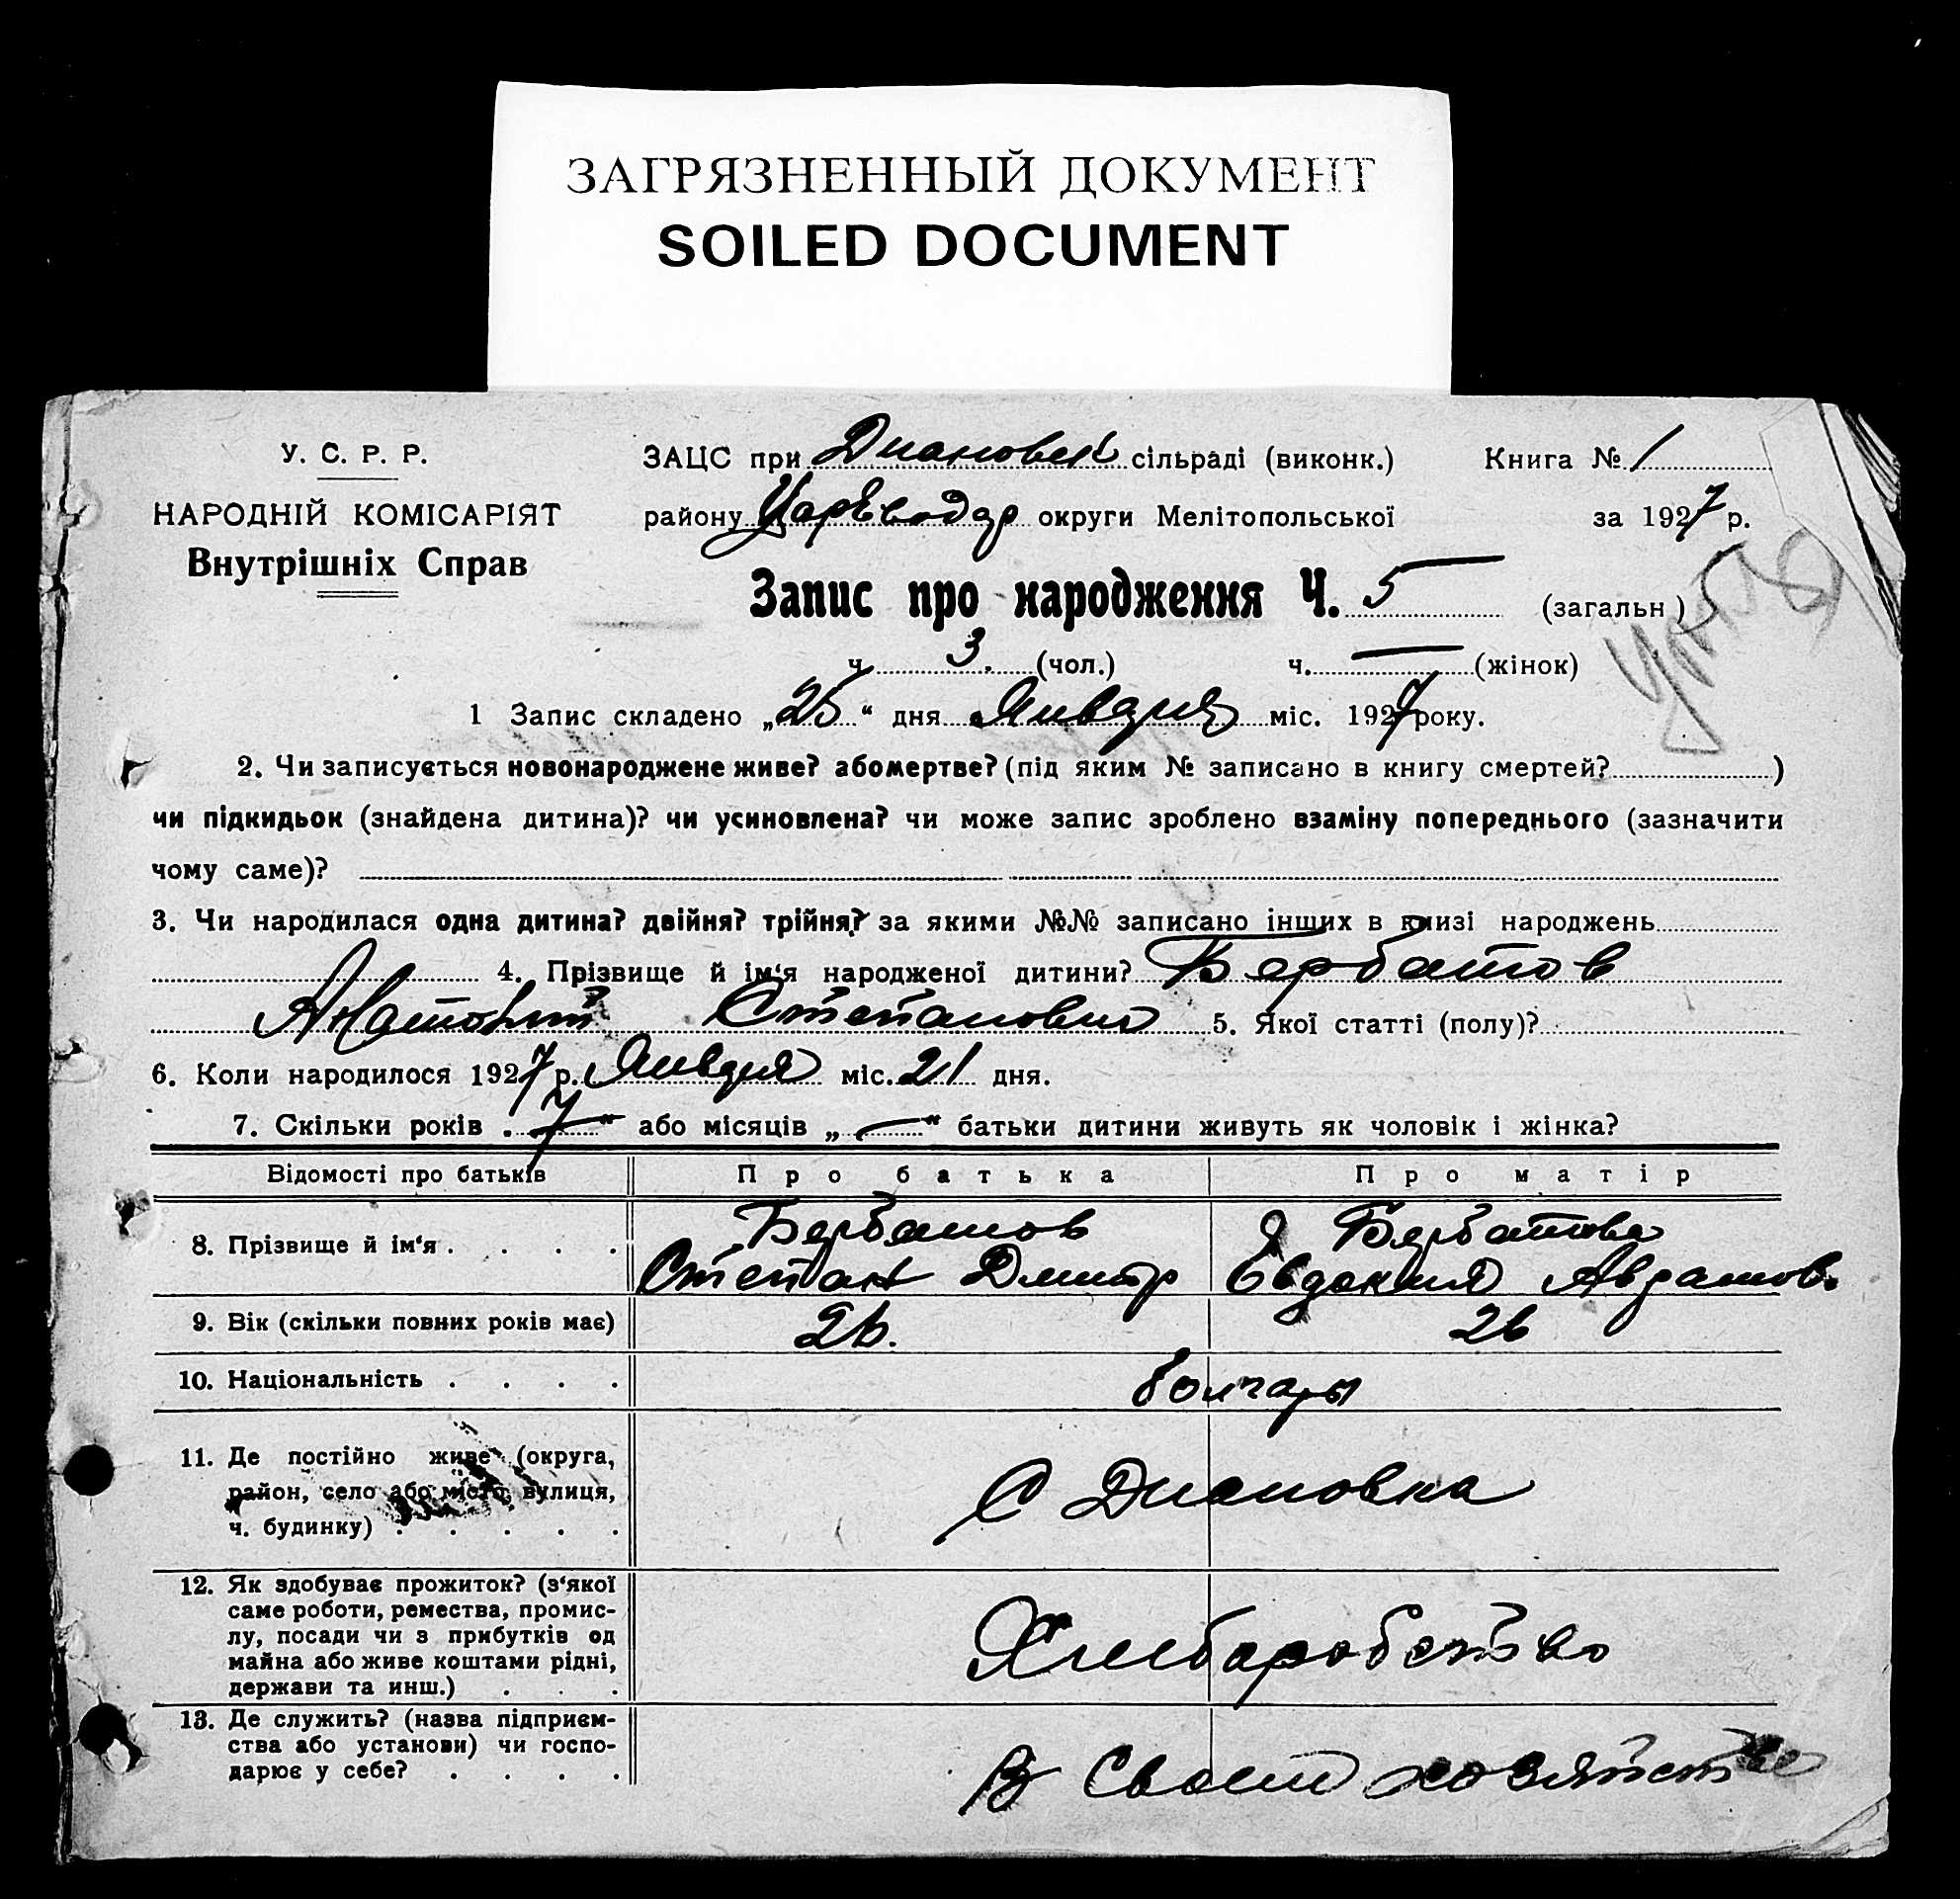 ЗАГРЯЗНЕННЫЙ ДОКУМЕНТ
SOILED DOCUMENT
У. С. Р. Р.
НАРОДНІЙ КОМІСАРІЯТ
Внутрішніх Справ
ЗАЦС при Диановск сільраді (виконк.) Книга № 1
району Царєводар округи Мелітопольської за 1927 р.
Запис про народження Ч. 5 (загальн)
ч. 3. (чол.) ч. — (жінок)
1 Запис складено „25“ дня Января міс. 1927 року.
2. Чи записується новонароджене живе? або мертве? (під яким № записано в книгу смертей? )
чи підкидьок (знайдена дитина)? чи усиновлена? чи може запис зроблено взаміну попереднього (зазначити
чому саме)?
3. Чи народилася одна дитина? двійня? трійня? за якими №№ записано інших в книзі народжень
4. Прізвище й ім‘я народженої дитини? Бербатов
Анатолий Степанович 5. Якої статті (полу)?
6. Коли народилося 1927 р. Января міс. 21 дня.
7. Скільки років „7“ або місяців „—“ батьки дитини живуть як чоловік і жінка?
Відомості про батьків Про батька Про матір
8. Прізвище й ім‘я . . . . Бербатов Бербатова
Степан Дмитр Евдокия Аврамов.
9. Вік (скільки повних років має) 26. 26
10. Національність . . . . болгары
11. Де постійно живе (округа,
район, село або місто, вулиця,
ч. будинку) . . . . .
С Диановка
12. Як здобуває прожиток? (з‘якої
саме роботи, ремества, промис-
лу, посади чи з прибутків од
майна або живе коштами рідні,
держави та инш.) . . .
Хлеборобство
13. Де служить? (назва підприєм-
ства або установи) чи госпо-
дарює у себе? . . . .
В своем хозяйстве